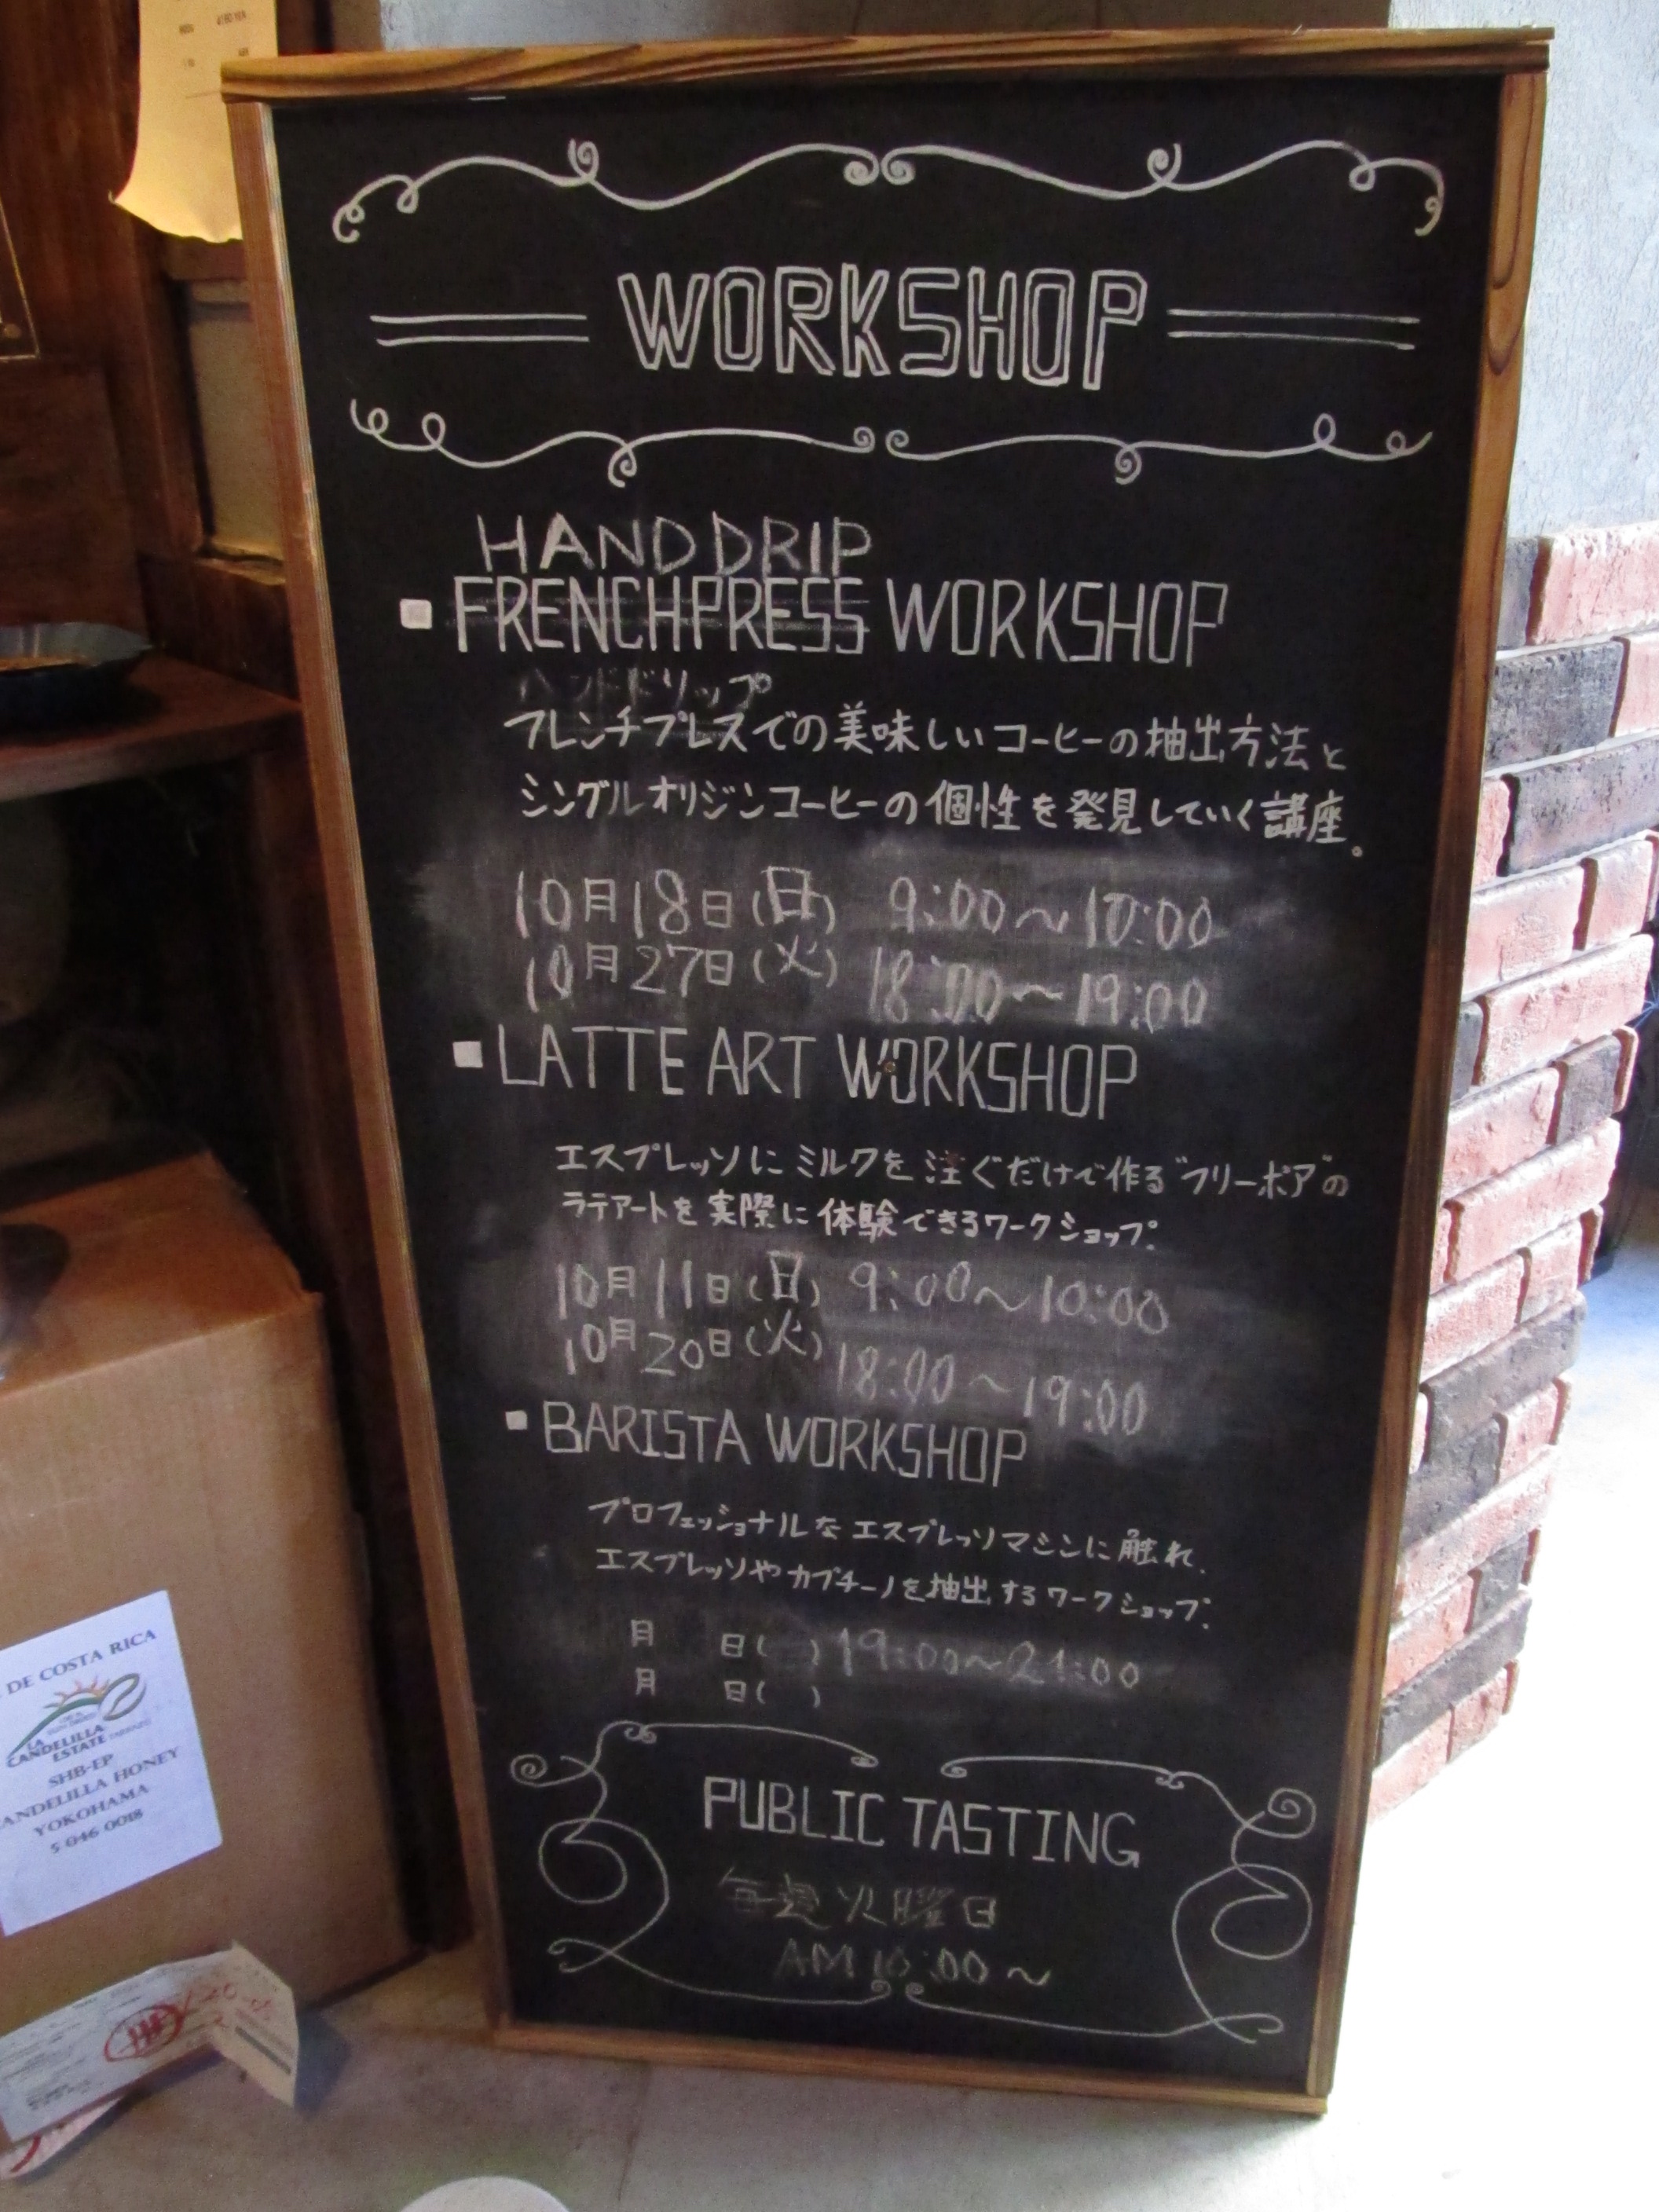 WORKSHOP
HAND DRIP
■ FRENCHPRESS WORKSHOP
ハンドドリップ
フレンチプレスでの美味しいコーヒーの抽出方法と
シングルオリジンコーヒーの個性を発見していく講座。
10月18日(日) 9:00~10:00
10月27日(火) 18:00~19:00
■ LATTE ART WORKSHOP
エスプレッソにミルクを注ぐだけで作る"フリーポア"の
ラテアートを実際に体験できるワークショップ。
10月11日(日) 9:00~10:00
10月20日(火) 18:00~19:00
■ BARISTA WORKSHOP
プロフェッショナルなエスプレッソマシンに触れ、
エスプレッソやカプチーノを抽出するワークショップ。
月 日( ) 19:00~21:00
月 日( )
PUBLIC TASTING
毎週火曜日
AM 10:00~
DE COSTA RICA
LA
CANDELILLA
ESTATE
SHB-EP
ANDELILLA HONEY
YOKOHAMA
5-046-0018